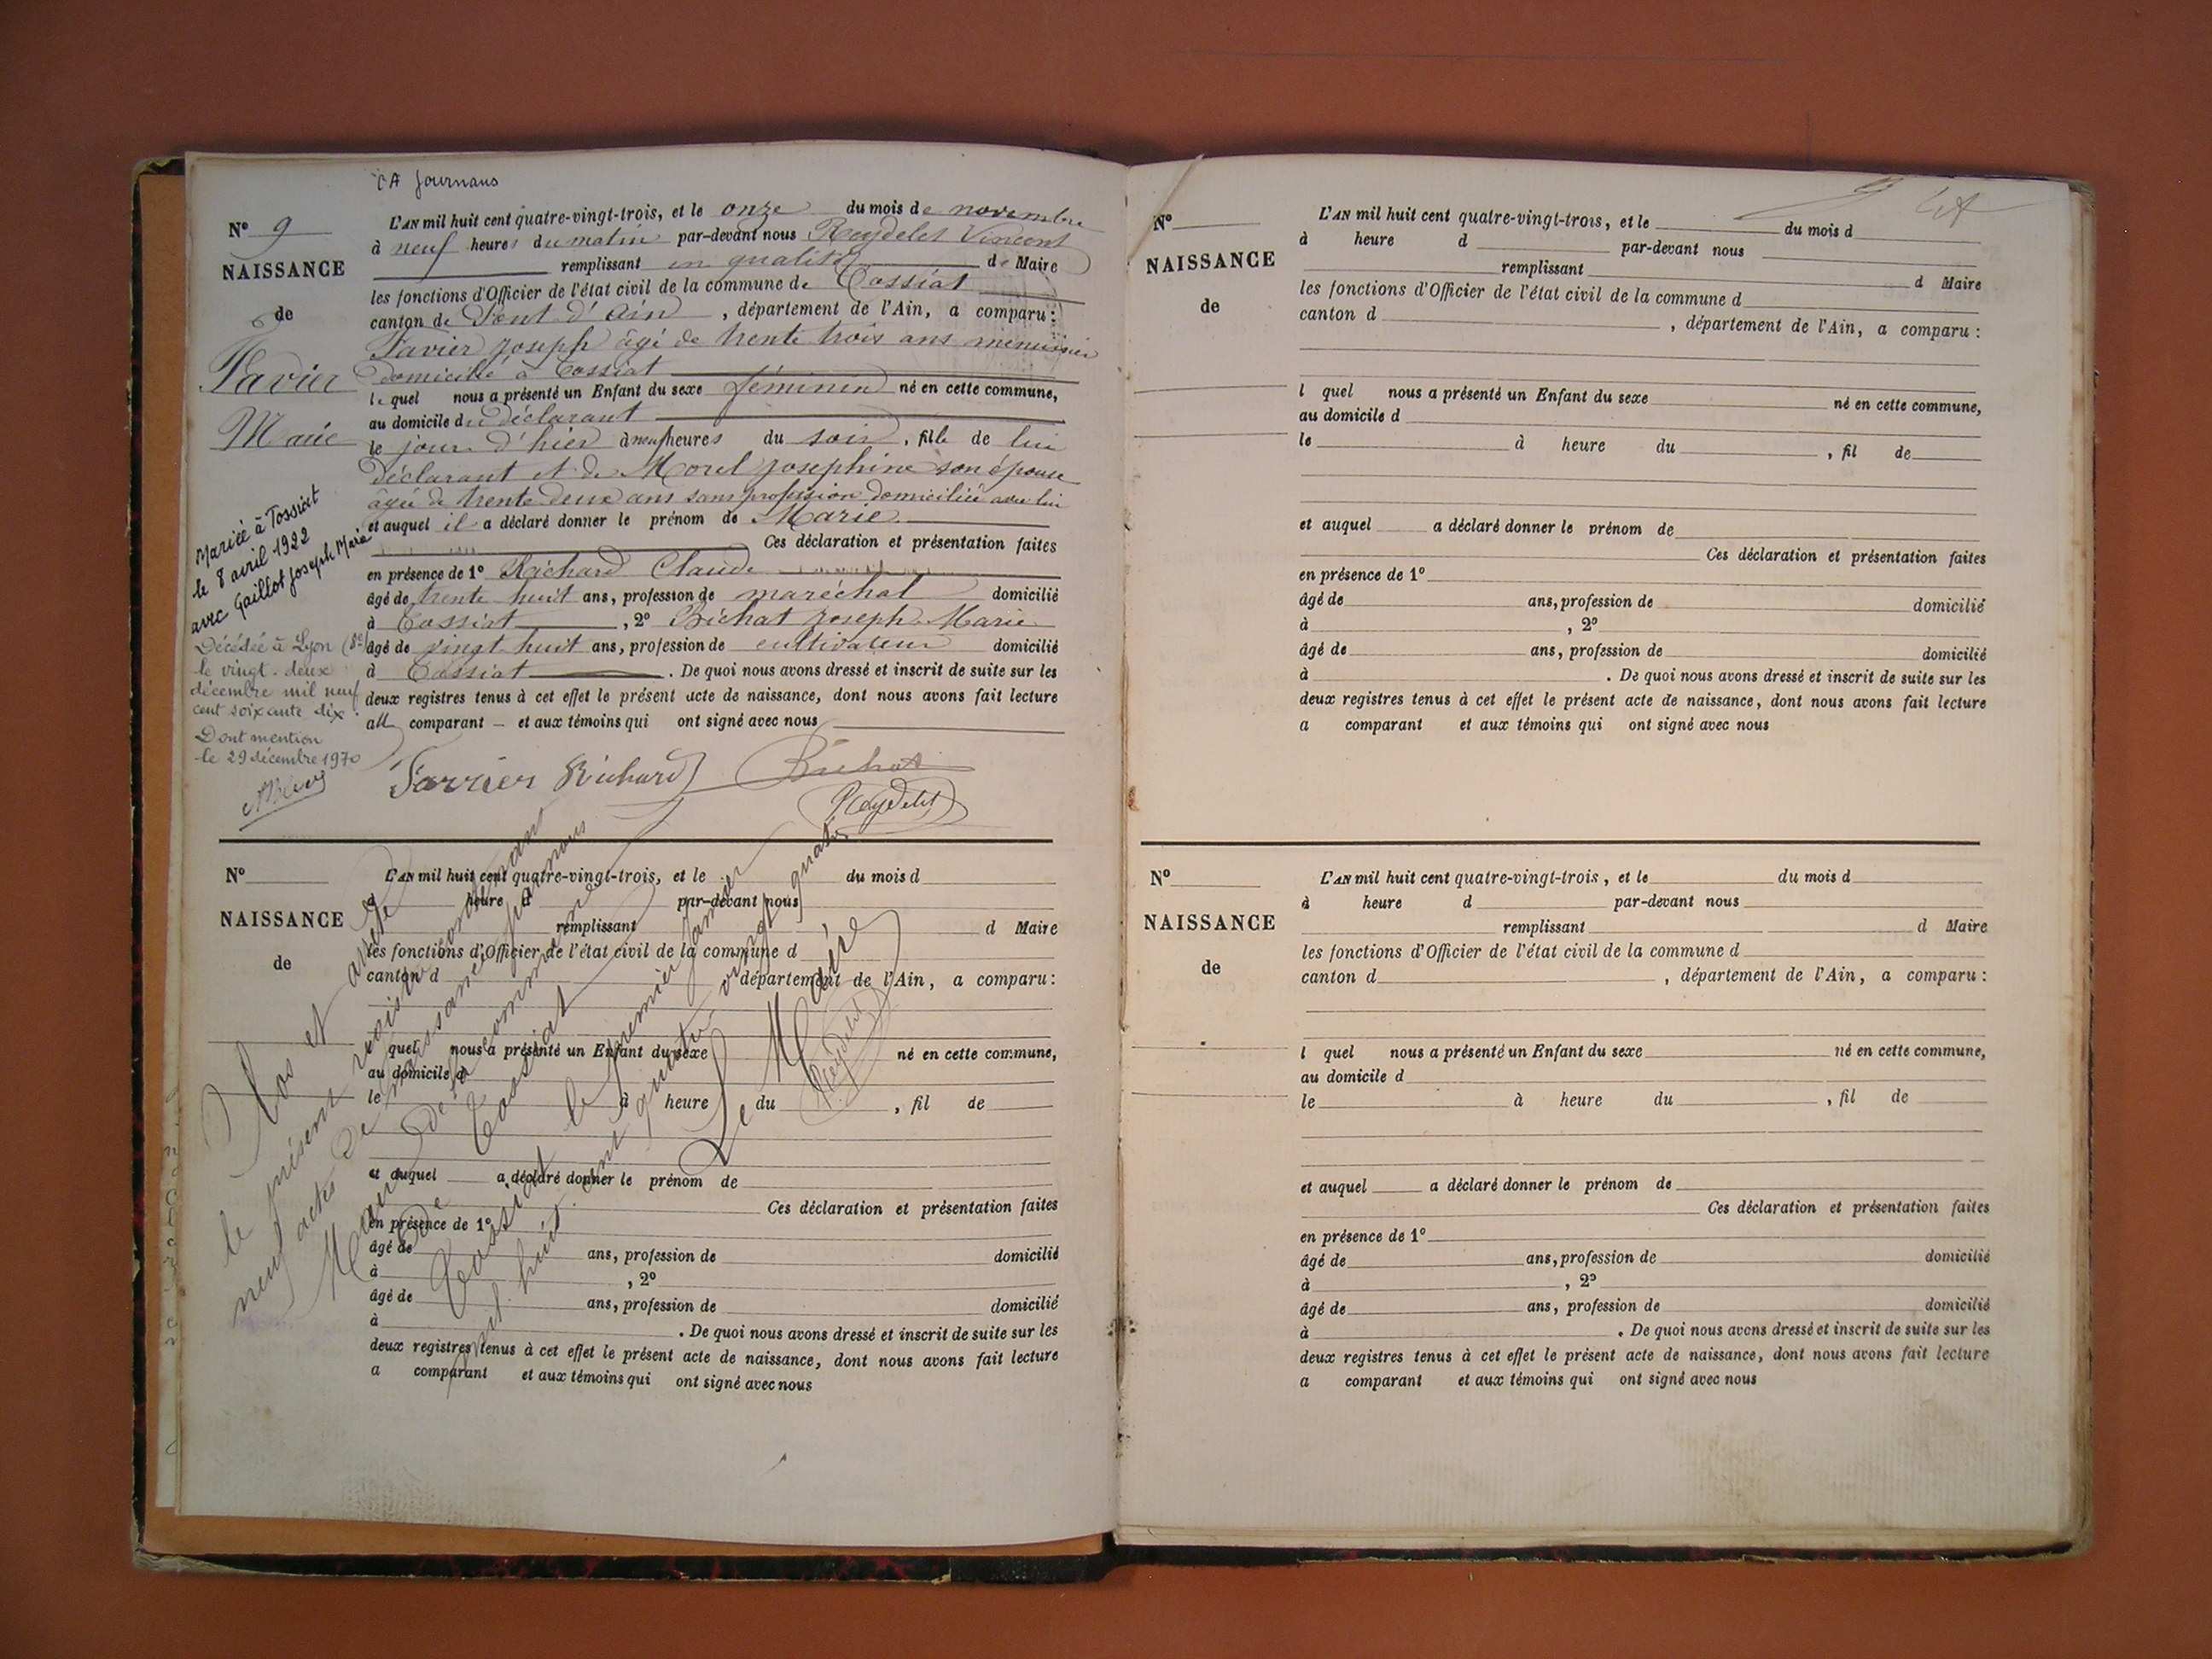 CA Journans
N° 9
NAISSANCE
de
Favier
Marie
Mariée à Tossiat
le 8 avril 1922
avec Gaillot Joseph Marie
Décédée à Lyon (8e)
le vingt-deux
décembre mil neuf
cent soixante dix.
Dont mention
le 29 décembre 1970
L'AN mil huit cent quatre-vingt-trois, et le onze du mois de novembre
à neuf heures du matin par-devant nous Reydelet Vincent
remplissant en qualité de Maire
les fonctions d'Officier de l'état civil de la commune de Tossiat
canton de Pont d'Ain, département de l'Ain, a comparu:
Favier Joseph âgé de trente trois ans menuisier
domicilié à Tossiat
lequel nous a présenté un Enfant du sexe féminin né en cette commune,
au domicile du déclarant
le jour d'hier à neuf heures du soir, fille de lui
déclarant et de Morel Josephine son épouse
âgée de trente deux ans sans profession domiciliée avec lui
et auquel il a déclaré donner le prénom de Marie
Ces déclaration et présentation faites
en présence de 1° Richard Claude
âgé de trente huit ans, profession de maréchal domicilié
à Tossiat, 2° Bichat Joseph Marie
âgé de vingt huit ans, profession de cultivateur domicilié
à Tossiat. De quoi nous avons dressé et inscrit de suite sur les
deux registres tenus à cet effet le présent acte de naissance, dont nous avons fait lecture
au comparant et aux témoins qui ont signé avec nous
Favier Richard Bichat
Reydelet
N°
NAISSANCE
de
L'AN mil huit cent quatre-vingt-trois, et le du mois d
à heure d par-devant nous
remplissant d Maire
les fonctions d'Officier de l'état civil de la commune d
canton d département de l'Ain, a comparu:
l quel nous a présenté un Enfant du sexe né en cette commune,
au domicile d
le à heure du , fil de
et auquel a déclaré donner le prénom de
Ces déclaration et présentation faites
en présence de 1°
âgé de ans, profession de domicilié
à , 2°
âgé de ans, profession de domicilié
à . De quoi nous avons dressé et inscrit de suite sur les
deux registres tenus à cet effet le présent acte de naissance, dont nous avons fait lecture
a comparant et aux témoins qui ont signé avec nous
Clos et arrêté
le présent registre contenant
neuf actes de naissance par nous
Maire de la commune
de Tossiat
Tossiat le premier janvier
mil huit cent quatre vingt quatre
Le Maire
Reydelet
N°
NAISSANCE
de
L'AN mil huit cent quatre-vingt-trois, et le du mois d
à heure d par-devant nous
remplissant d Maire
les fonctions d'Officier de l'état civil de la commune d
canton d , département de l'Ain, a comparu:
l quel nous a présenté un Enfant du sexe né en cette commune,
au domicile d
le à heure du , fil de
et auquel a déclaré donner le prénom de
Ces déclaration et présentation faites
en présence de 1°
âgé de ans, profession de domicilié
à , 2°
âgé de ans, profession de domicilié
à . De quoi nous avons dressé et inscrit de suite sur les
deux registres tenus à cet effet le présent acte de naissance, dont nous avons fait lecture
a comparant et aux témoins qui ont signé avec nous
N°
NAISSANCE
de
L'AN mil huit cent quatre-vingt-trois, et le du mois d
à heure d par-devant nous
remplissant d Maire
les fonctions d'Officier de l'état civil de la commune d
canton d , département de l'Ain, a comparu:
l quel nous a présenté un Enfant du sexe né en cette commune,
au domicile d
le à heure du , fil de
et auquel a déclaré donner le prénom de
Ces déclaration et présentation faites
en présence de 1°
âgé de ans, profession de domicilié
à , 2°
âgé de ans, profession de domicilié
à . De quoi nous avons dressé et inscrit de suite sur les
deux registres tenus à cet effet le présent acte de naissance, dont nous avons fait lecture
a comparant et aux témoins qui ont signé avec nous